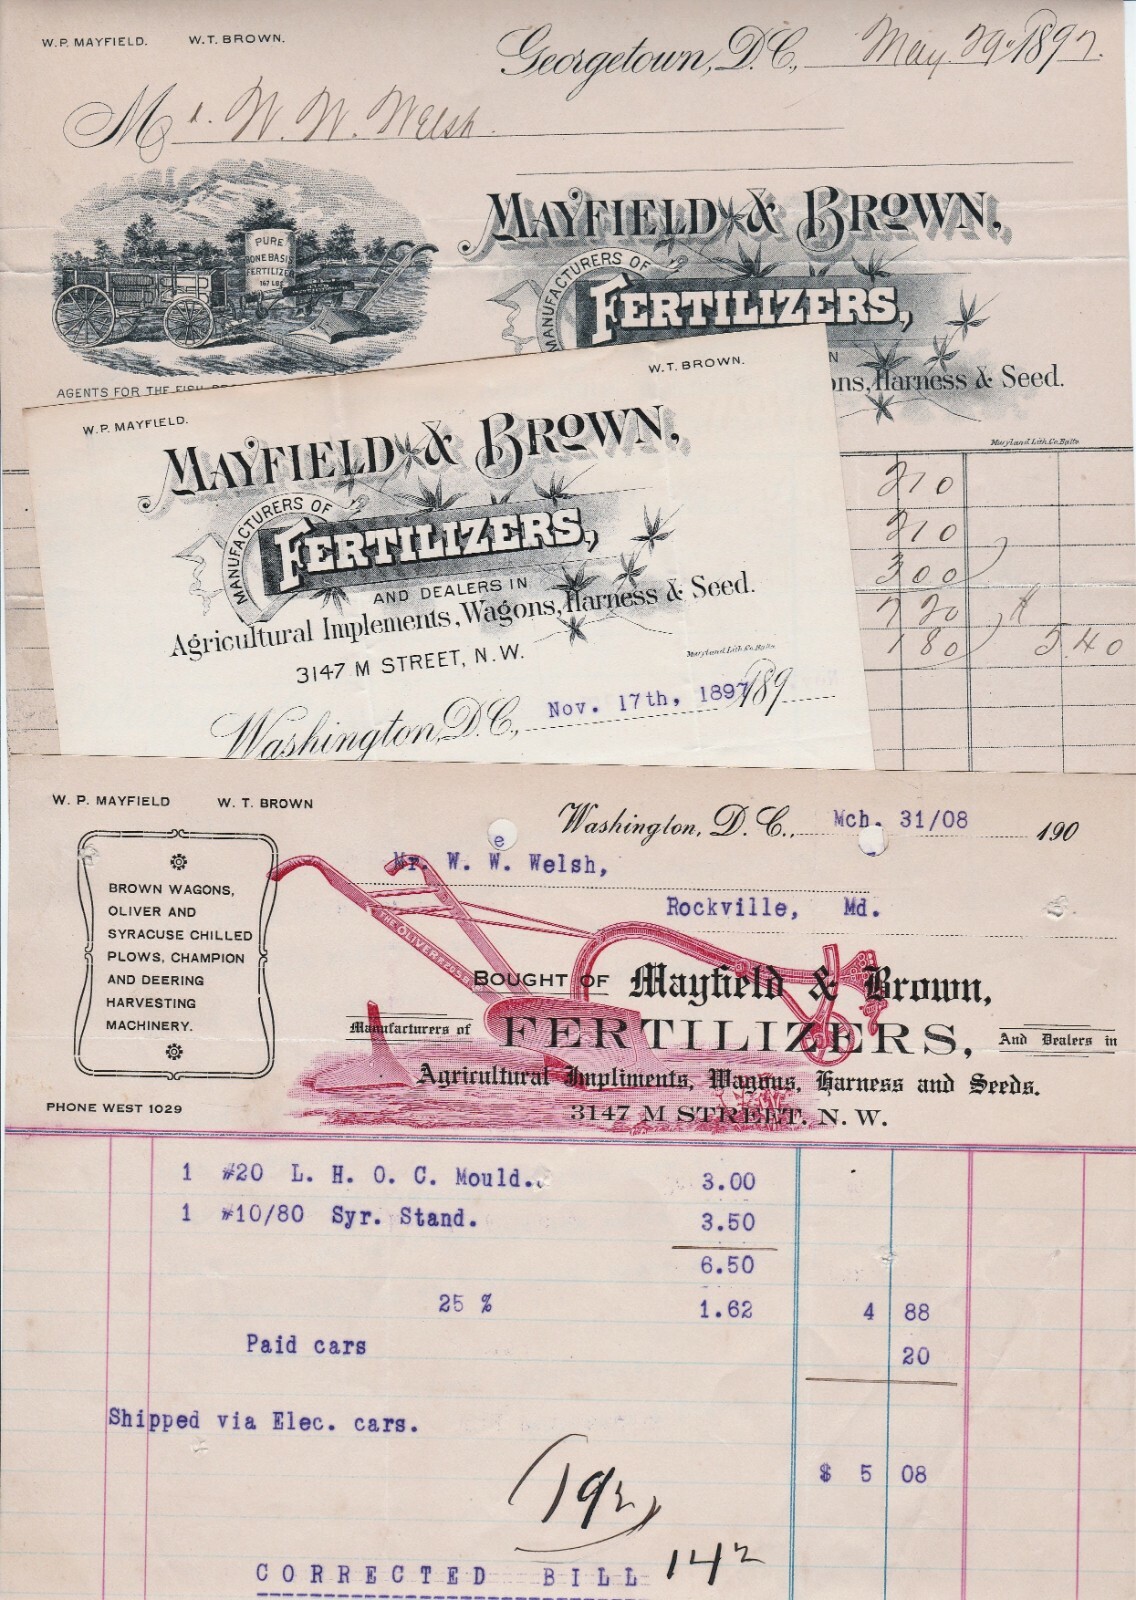 W.P. MAYFIELD. W.T. BROWN.
Georgetown, D.C., May. 29. 1897.
Mr. W. W. Welsh.
PURE
BONE BASIS
FERTILIZER
167 LBS
MAYFIELD & BROWN,
MANUFACTURERS OF
FERTILIZERS,
IN
ons, Harness & Seed.
AGENTS FOR THE FISH
Maryland Lith. Co. Balto
210
210
300
720
180 5.40
W.P. MAYFIELD. W.T. BROWN.
MAYFIELD & BROWN,
MANUFACTURERS OF
FERTILIZERS,
AND DEALERS IN
Agricultural Implements, Wagons, Harness & Seed.
3147 M STREET, N.W.
Maryland Lith. Co. Balto
Washington, D.C., Nov. 17th, 1897 189
W. P. MAYFIELD W. T. BROWN
Washington, D. C., Mch. 31/08 190
e
Mr. W. W. Welsh,
Rockville, Md.
BROWN WAGONS,
OLIVER AND
SYRACUSE CHILLED
PLOWS, CHAMPION
AND DEERING
HARVESTING
MACHINERY.
PHONE WEST 1029
THE OLIVER
BOUGHT OF Mayfield & Brown,
Manufacturers of FERTILIZERS, And Dealers in
Agricultural Impliments, Wagons, Harness and Seeds.
3147 M STREET. N. W.
1 #20 L. H. O. C. Mould. 3.00
1 #10/80 Syr. Stand. 3.50
6.50
25 % 1.62 4 88
Paid cars 20
Shipped via Elec. cars.
$ 5 08
142
CORRECTED BILL